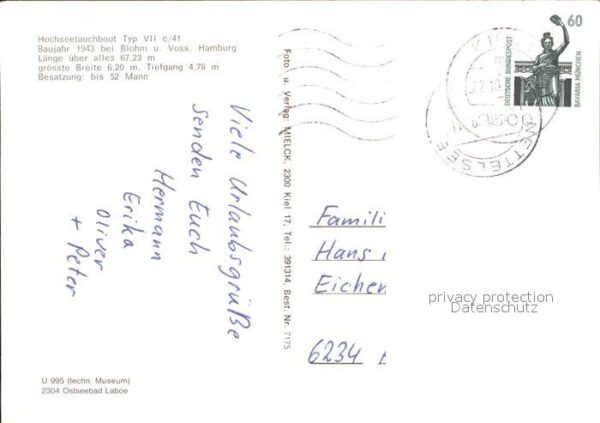 Hochseetauchboot Typ VII c/41
Baujahr 1943 bei Blohm u. Voss, Hamburg
Länge über alles 67,23 m
grösste Breite 6,20 m, Tiefgang 4,78 m
Besatzung: bis 52 Mann
Viele Urlaubsgrüße
senden Euch
Hermann
Erika
Oliver
+ Peter
U 995 (techn. Museum)
2304 Ostseebad Laboe
Foto u. Verlag: MIELCK, 2300 Kiel 17, Tel.: 391314, Best. Nr. 7175
60
DEUTSCHE BUNDESPOST
BAVARIA MÜNCHEN
NETTELSEE
Famili
Hans
Eichen
6234
privacy protection
Datenschutz